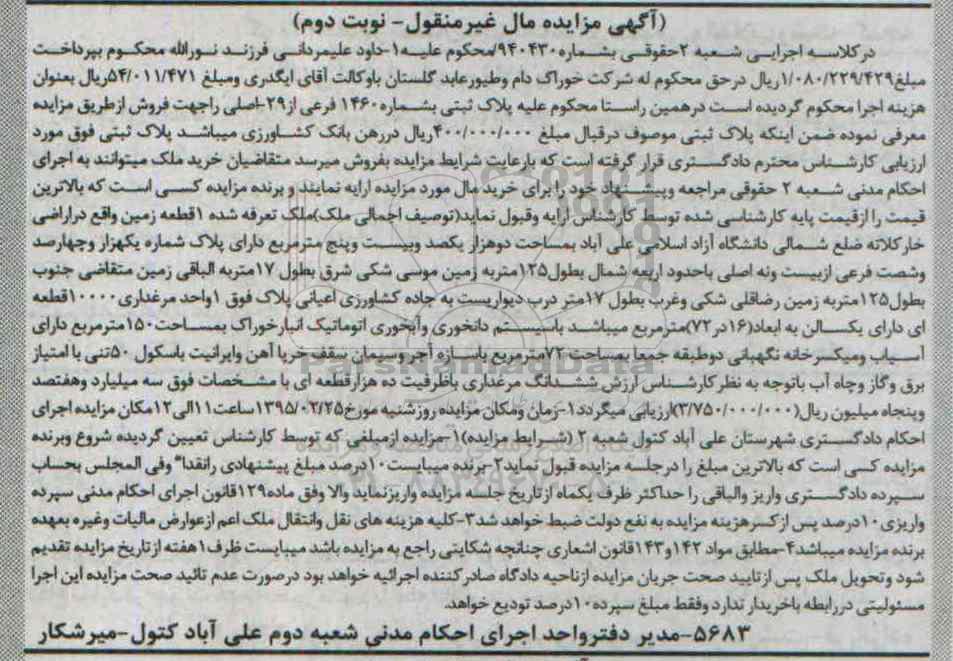 (آگهی مزایده مال غیرمنقول- نوبت دوم)
درکلاسه اجرایی شعبه ۲حقوقی بشماره۹۴۰۴۳۰/محکوم علیه۱-داود علیمردانی فرزند نورالله محکوم بپرداخت
مبلغ۱/۰۸۰/۲۲۹/۴۲۹ریال درحق محکوم له شرکت خوراک دام وطیورعابد گلستان باوکالت آقای ایگدری ومبلغ ۵۴/۰۱۱/۴۷۱ریال بعنوان
هزینه اجرا محکوم گردیده است درهمین راستا محکوم علیه پلاک ثبتی بشماره۱۴۶۰ فرعی از۲۹-اصلی راجهت فروش ازطریق مزایده
معرفی نموده ضمن اینکه پلاک ثبتی موصوف درقبال مبلغ ۴۰۰/۰۰۰/۰۰۰ریال دررهن بانک کشاورزی میباشد پلاک ثبتی فوق مورد
ارزیابی کارشناس محترم دادگستری قرار گرفته است که بارعایت شرایط مزایده بفروش میرسد متقاضیان خرید ملک میتوانند به اجرای
احکام مدنی شعبه ۲ حقوقی مراجعه وپیشنهاد خود را برای خرید مال مورد مزایده ارایه نمایند و برنده مزایده کسی است که بالاترین
قیمت را ازقیمت پایه کارشناسی شده توسط کارشناس ارایه وقبول نماید(توصیف اجمالی ملک)ملک تعرفه شده ۱قطعه زمین واقع دراراضی
خارکلاته ضلع شمالی دانشگاه آزاد اسلامی علی آباد بمساحت دوهزار یکصد وبیست وپنج مترمربع دارای پلاک شماره یکهزار وچهارصد
وشصت فرعی ازبیست ونه اصلی باحدود اربعه شمال بطول۱۲۵متربه زمین موسی شکی شرق بطول ۱۷متربه الباقی زمین متقاضی جنوب
بطول۱۲۵متربه زمین رضاقلی شکی وغرب بطول ۱۷متر درب دیواریست به جاده کشاورزی اعیانی پلاک فوق ۱واحد مرغداری۱۰۰۰۰قطعه
ای دارای یکسالن به ابعاد(۱۶در۷۲)مترمربع میباشد باسیستم دانخوری وآبخوری اتوماتیک انبارخوراک بمساحت۱۵۰مترمربع دارای
آسیاب ومیکسرخانه نگهبانی دوطبقه جمعا بمساحت۷۲مترمربع باسازه آجر وسیمان سقف خرپا آهن وایرانیت باسکول ۵۰تنی با امتیاز
برق وگاز وچاه آب باتوجه به نظر کارشناس ارزش ششدانگ مرغداری باظرفیت ده هزارقطعه ای با مشخصات فوق سه میلیارد وهفتصد
وپنجاه میلیون ریال(۳/۷۵۰/۰۰۰/۰۰۰)ارزیابی میگردد۱-زمان ومکان مزایده روزشنبه مورخ۱۳۹۵/۰۲/۲۵ساعت۱۱الی۱۲مکان مزایده اجرای
احکام دادگستری شهرستان علی آباد کتول شعبه ۲ (شرایط مزایده)۱-مزایده ازمبلغی که توسط کارشناس تعیین گردیده شروع وبرنده
مزایده کسی است که بالاترین مبلغ را درجلسه مزایده قبول نماید۲-برنده میبایست۱۰درصد مبلغ پیشنهادی رانقدا" وفی المجلس بحساب
سپرده دادگستری واریز والباقی را حداکثر ظرف یکماه ازتاریخ جلسه مزایده واریزنماید والا وفق ماده۱۲۹قانون اجرای احکام مدنی سپرده
واریزی۱۰درصد پس ازکسرهزینه مزایده به نفع دولت ضبط خواهد شد۳-کلیه هزینه های نقل وانتقال ملک اعم ازعوارض مالیات وغیره بعهده
برنده مزایده میباشد۴-مطابق مواد ۱۴۲و۱۴۳قانون اشعاری چنانچه شکایتی راجع به مزایده باشد میبایست ظرف۱هفته ازتاریخ مزایده تقدیم
شود وتحویل ملک پس ازتایید صحت جریان مزایده ازناحیه دادگاه صادرکننده اجرائیه خواهد بود درصورت عدم تائید صحت مزایده این اجرا
مسئولیتی دررابطه باخریدار ندارد وفقط مبلغ سپرده۱۰درصد تودیع خواهد.
۵۶۸۳-مدیر دفترواحد اجرای احکام مدنی شعبه دوم علی آباد کتول-میرشکار
ParsNamadData